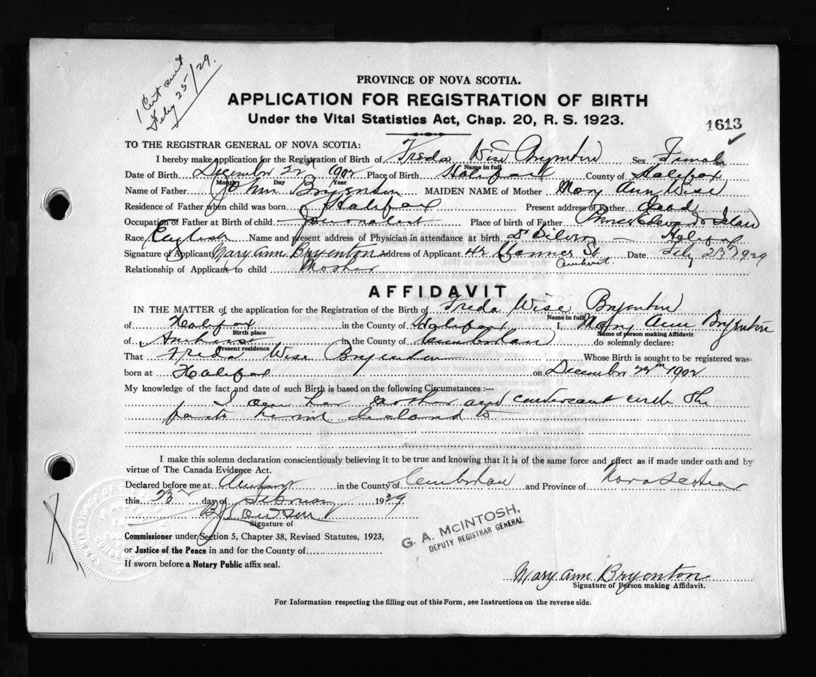 1 Cert sent
Feby 25/29.
PROVINCE OF NOVA SCOTIA.
APPLICATION FOR REGISTRATION OF BIRTH
Under the Vital Statistics Act, Chap. 20, R. S. 1923.
1613
TO THE REGISTRAR GENERAL OF NOVA SCOTIA:
I hereby make application for the Registration of Birth of Freda Wise Bryenton Sex Female
Name in full
Date of Birth December 22 1902 Place of Birth Halifax County of Halifax
Month Day Year
Name of Father John Bryenton MAIDEN NAME of Mother Mary Ann Wise
Residence of Father when child was born Halifax Present address of Father Dead
Occupation of Father at Birth of child Journalist Place of birth of Father Prince Edward Island
Race English Name and present address of Physician in attendance at birth Halifax
Signature of Applicant Mary Ann Bryenton Address of Applicant St Amherst Date Feby 23 1929
Relationship of Applicant to child Mother
AFFIDAVIT
IN THE MATTER of the application for the Registration of the Birth of Freda Wise Bryenton
Name in full
of Halifax in the County of Halifax I, Mary Ann Bryenton
Birth place Name of person making Affidavit
of Amherst in the County of Cumberland do solemnly declare:
Present residence
That Freda Wise Bryenton Whose Birth is sought to be registered was
born at Halifax on December 22nd 1902
My knowledge of the fact and date of such Birth is based on the following Circumstances :—
I am her mother and conversant with the
facts herein declared to
I make this solemn declaration conscientiously believing it to be true and knowing that it is of the same force and effect as if made under oath and by
virtue of The Canada Evidence Act.
Declared before me at Amherst in the County of Cumberland and Province of Nova Scotia
this 23rd day of February 1929
Signature of
Commissioner under Section 5, Chapter 38, Revised Statutes, 1923,
or Justice of the Peace in and for the County of
If sworn before a Notary Public affix seal.
G. A. McINTOSH,
DEPUTY REGISTRAR GENERAL
Mary Ann Bryenton
Signature of Person making Affidavit.
For Information respecting the filling out of this Form, see Instructions on the reverse side.